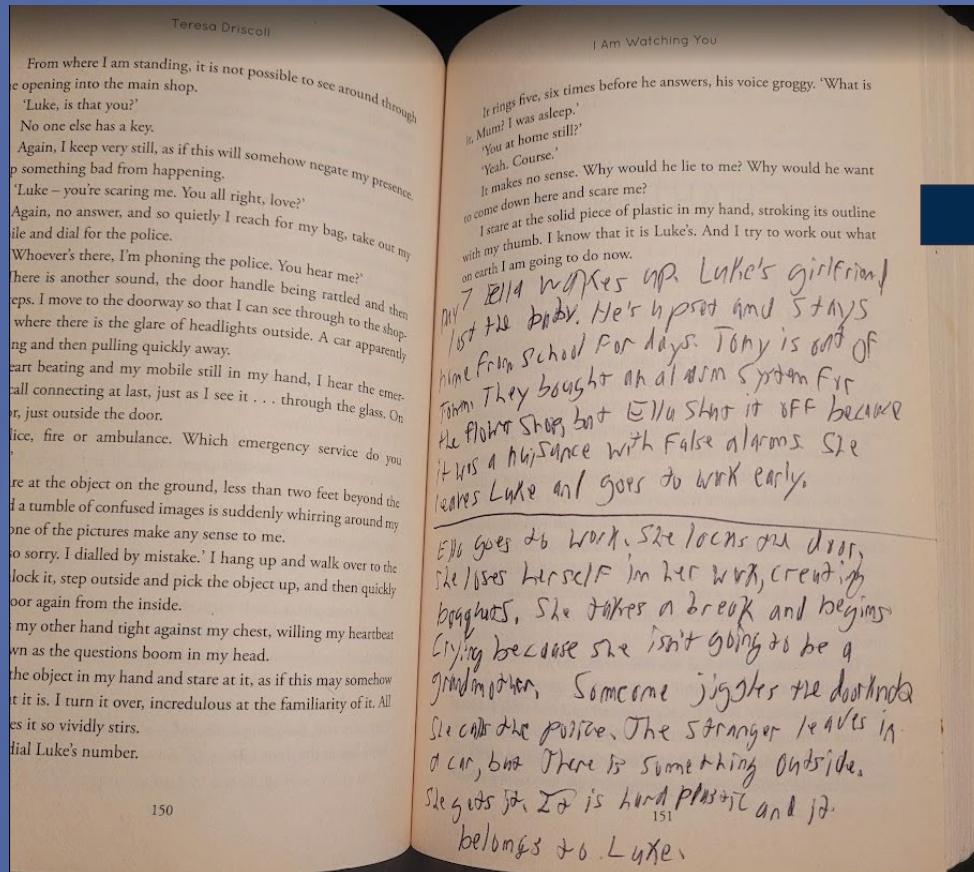 Teresa Driscoll
From where I am standing, it is not possible to see around through
e opening into the main shop.
'Luke, is that you?'
No one else has a key.
Again, I keep very still, as if this will somehow negate my presence.
p something bad from happening.
'Luke – you're scaring me. You all right, love?'
Again, no answer, and so quietly I reach for my bag, take out my
ile and dial for the police.
'Whoever's there, I'm phoning the police. You hear me?'
There is another sound, the door handle being rattled and then
eps. I move to the doorway so that I can see through to the shop-
where there is the glare of headlights outside. A car apparently
ng and then pulling quickly away.
eart beating and my mobile still in my hand, I hear the emer-
call connecting at last, just as I see it . . . through the glass. On
or, just outside the door.
lice, fire or ambulance. Which emergency service do you
'
re at the object on the ground, less than two feet beyond the
d a tumble of confused images is suddenly whirring around my
one of the pictures make any sense to me.
so sorry. I dialled by mistake.' I hang up and walk over to the
lock it, step outside and pick the object up, and then quickly
oor again from the inside.
my other hand tight against my chest, willing my heartbeat
wn as the questions boom in my head.
the object in my hand and stare at it, as if this may somehow
t it is. I turn it over, incredulous at the familiarity of it. All
es it so vividly stirs.
dial Luke's number.
150
I Am Watching You
It rings five, six times before he answers, his voice groggy. 'What is
it, Mum? I was asleep.'
'You at home still?'
'Yeah. Course.'
It makes no sense. Why would he lie to me? Why would he want
to come down here and scare me?
I stare at the solid piece of plastic in my hand, stroking its outline
with my thumb. I know that it is Luke's. And I try to work out what
on earth I am going to do now.
7 Ella wakes up. Luke's girlfriend
lost the baby. He's upset and stays
home from school for days. Tony is out of
town. They bought an alarm system for
the flower shop, but Ella shut it off because
it was a nuisance with false alarms. She
leaves Luke and goes to work early.
Ella goes to work. She locks the door.
She loses herself in her work, creating
She takes a break and begins
crying because she isn't going to be a
grandmother. Someone jiggles the
She calls the police. The stranger leaves in
a car, but there is something outside.
She gets it. It is hard plastic and it
151
belongs to Luke.